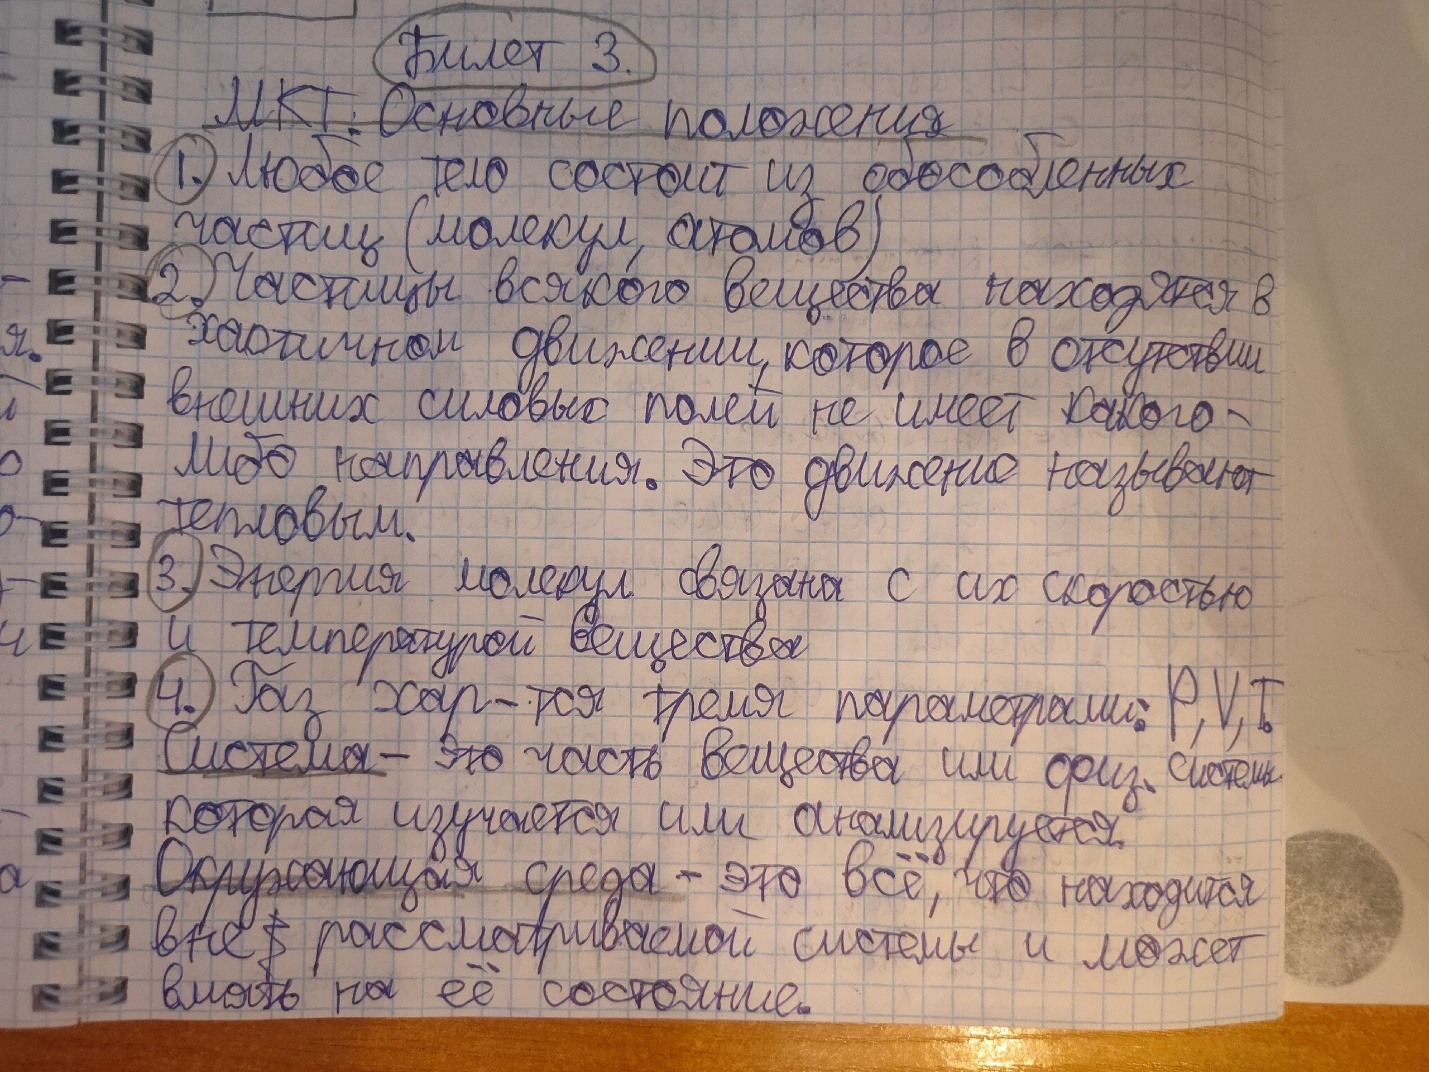 Билет 3.
МКТ. Основные положения
1. Любое тело состоит из обособленных
частиц (молекул, атомов)
2. Частицы всякого вещества находятся в
хаотичном движении, которое в отсутствии
внешних силовых полей не имеет какого-
либо направления. Это движение называют
тепловым.
3. Энергия молекул связана с их скоростью
и температурой вещества
4. Газ хар-тся тремя параметрами: P, V, T.
Система - это часть вещества или физ. системы
которая изучается или анализируется.
Окружающая среда - это всё, что находится
вне рассматриваемой системы и может
влиять на её состояние.